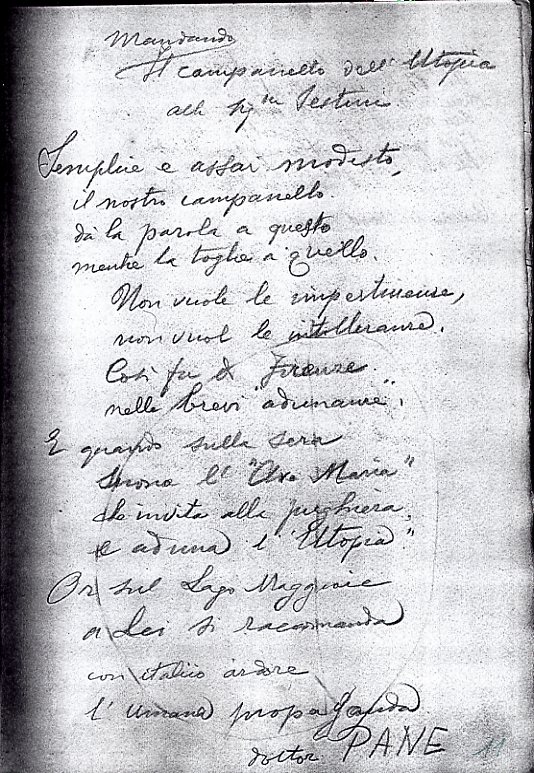 Mandando
Il campanello dell' Utopia
alla Sig.na Sestini
Semplice e assai modesto,
il nostro campanello
dà la parola a questo
mentre la toglie a quello.
Non vuole le impertinenze,
non vuol le intolleranze.
Così fu di Firenze
nelle brevi "adunanze".
E quando sulla sera
suona l' "Ave Maria"
che invita alla preghiera,
e aduna l' "Utopia"
Or sul Lago Maggiore
a Lei si raccomanda
con italico ardore
l' umana propaganda
dottor PANE 11